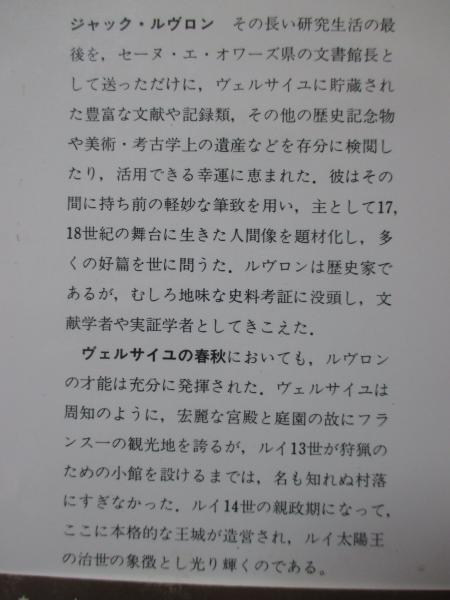 ジャック・ルヴロン　その長い研究生活の最
後を，セーヌ・エ・オワーズ県の文書館長と
して送っただけに，ヴェルサイユに貯蔵され
た豊富な文献や記録類，その他の歴史記念物
や美術・考古学上の遺産などを存分に検閲し
たり，活用できる幸運に恵まれた．彼はその
間に持ち前の軽妙な筆致を用い，主として17，
18世紀の舞台に生きた人間像を題材化し，多
くの好篇を世に問うた．ルヴロンは歴史家で
あるが，むしろ地味な史料考証に没頭し，文
献学者や実証学者としてきこえた．
ヴェルサイユの春秋においても，ルヴロン
の才能は充分に発揮された．ヴェルサイユは
周知のように，宏麗な宮殿と庭園の故にフラ
ンス一の観光地を誇るが，ルイ13世が狩猟の
ための小館を設けるまでは，名も知れぬ村落
にすぎなかった．ルイ14世の親政期になって，
ここに本格的な王城が造営され，ルイ太陽王
の治世の象徴とし光り輝くのである。